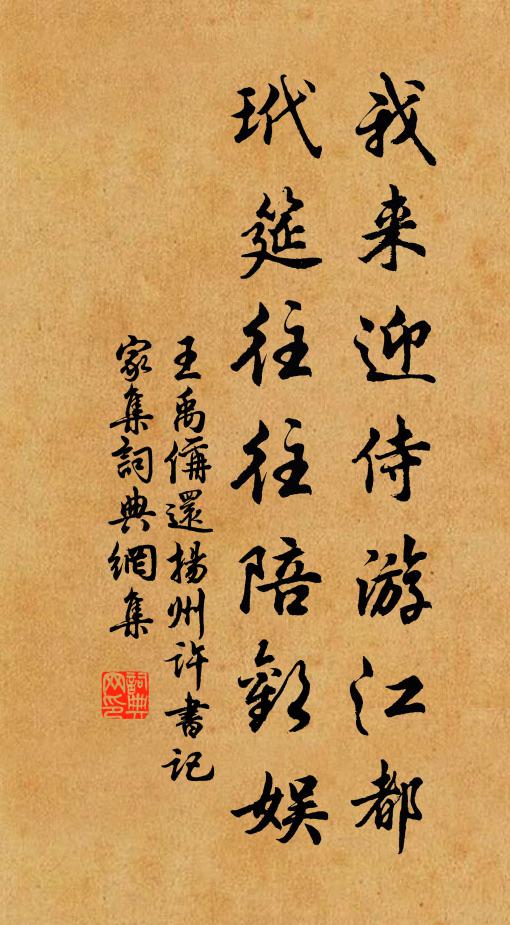 我来迎侍游江都
玳筵往往陪歡娱
王禹偁還揚州許書記
家集詞典網集
詞典網印